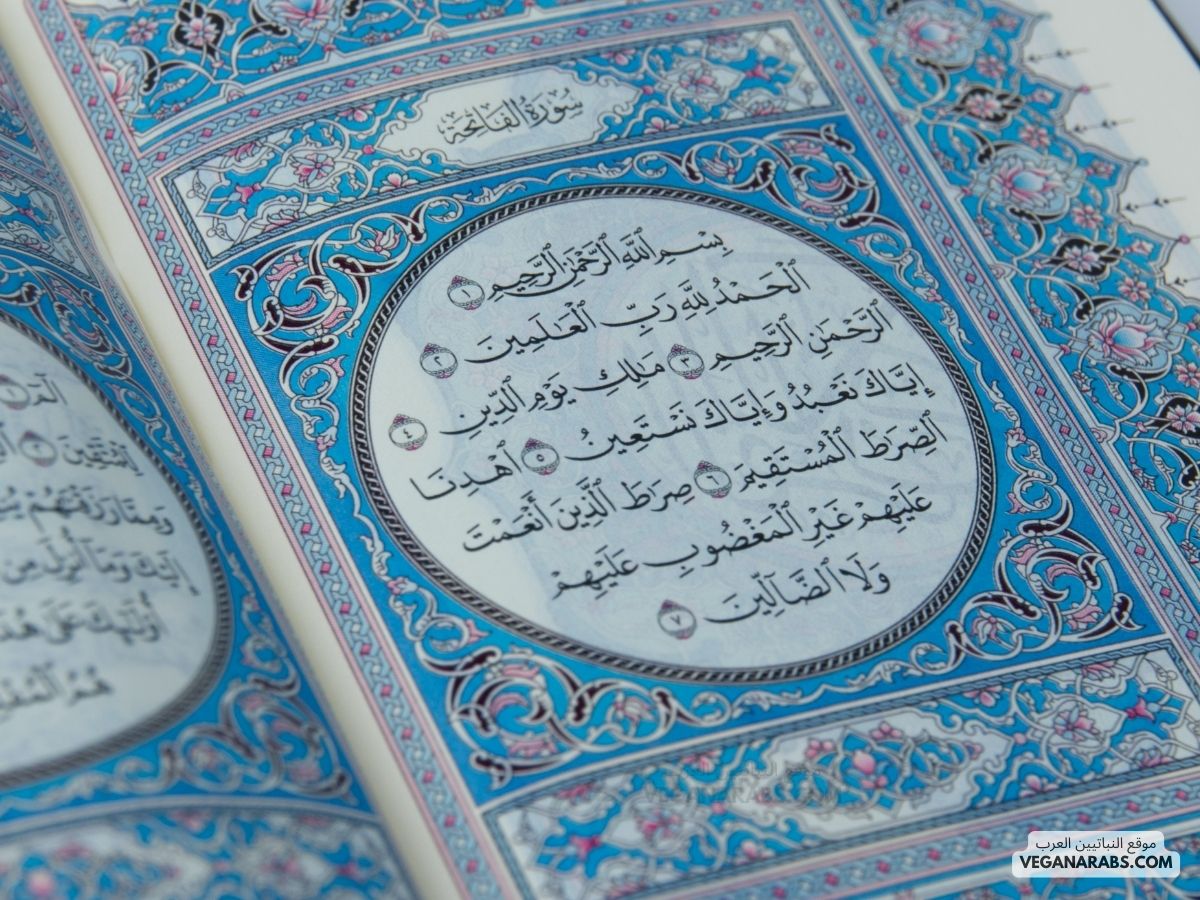 سُورَةُ الفَاتِحَةِ
بِسْمِ ٱللَّهِ ٱلرَّحْمَٰنِ ٱلرَّحِيمِ ١
ٱلْحَمْدُ لِلَّهِ رَبِّ ٱلْعَٰلَمِينَ ٢
ٱلرَّحْمَٰنِ ٱلرَّحِيمِ ٣ مَٰلِكِ يَوْمِ ٱلدِّينِ ٤
إِيَّاكَ نَعْبُدُ وَإِيَّاكَ نَسْتَعِينُ ٥ ٱهْدِنَا
ٱلصِّرَٰطَ ٱلْمُسْتَقِيمَ ٦ صِرَٰطَ ٱلَّذِينَ أَنْعَمْتَ
عَلَيْهِمْ غَيْرِ ٱلْمَغْضُوبِ عَلَيْهِمْ
وَلَا ٱلضَّآلِّينَ ٧
الٓمٓ ١
لِّلْمُتَّقِينَ ٢
وَمِمَّا رَزَقْنَٰهُمْ
إِلَيْكَ وَمَآ أُنزِلَ مِن
أُو۟لَٰٓئِكَ عَلَىٰ
هُمُ
موقع النباتيين العرب
VEGANARABS.COM